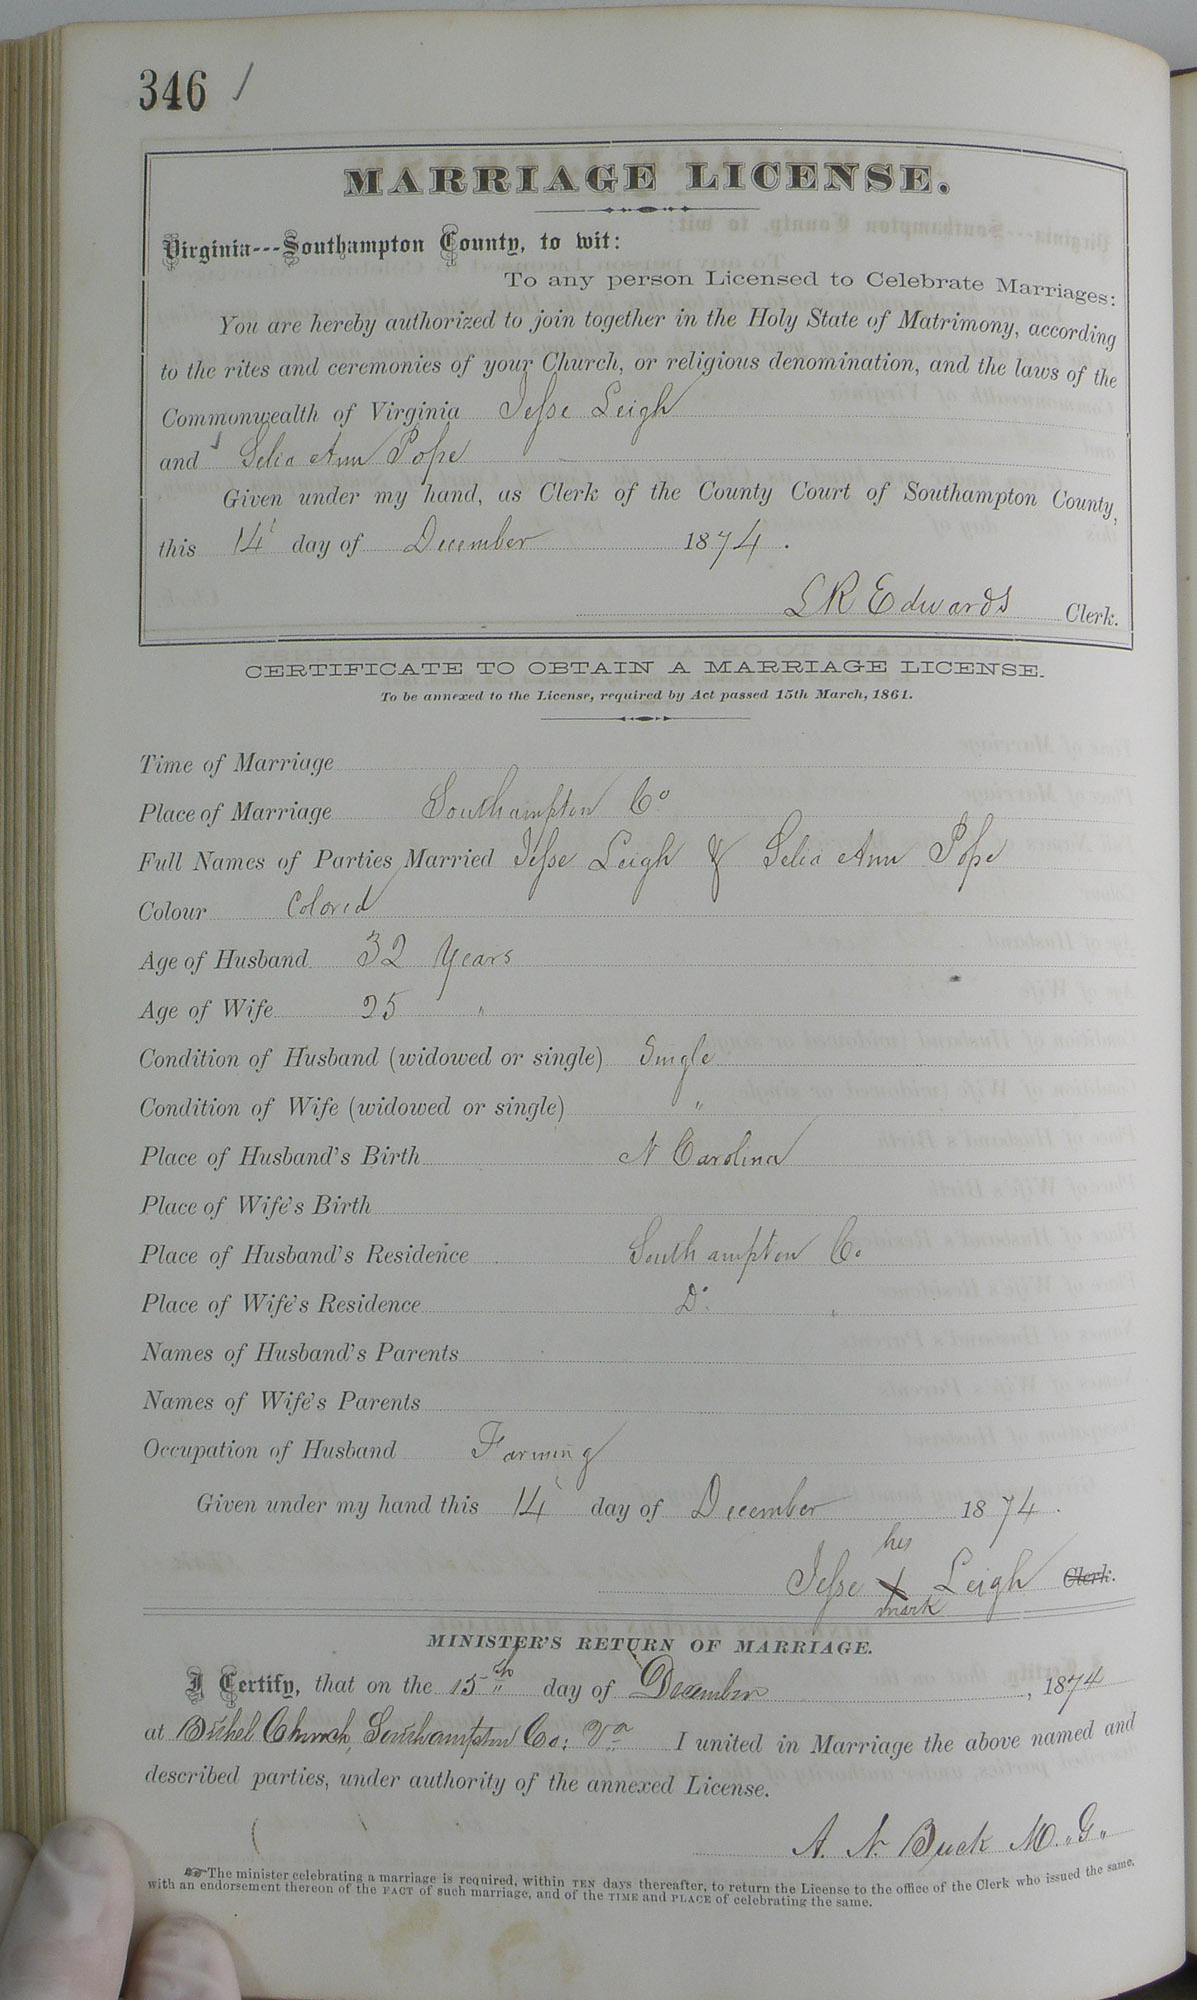 346 /
MARRIAGE LICENSE.
Virginia---Southampton County, to wit:
To any person Licensed to Celebrate Marriages:
You are hereby authorized to join together in the Holy State of Matrimony, according
to the rites and ceremonies of your Church, or religious denomination, and the laws of the
Commonwealth of Virginia Jesse Leigh
and Selia Ann Pope
Given under my hand, as Clerk of the County Court of Southampton County,
this 14 day of December 1874.
L R Edwards Clerk.
CERTIFICATE TO OBTAIN A MARRIAGE LICENSE.
To be annexed to the License, required by Act passed 15th March, 1861.
Time of Marriage
Place of Marriage Southampton Co
Full Names of Parties Married Jesse Leigh & Selia Ann Pope
Colour Colored
Age of Husband 32 Years
Age of Wife 25 "
Condition of Husband (widowed or single) Single
Condition of Wife (widowed or single) "
Place of Husband's Birth N Carolina
Place of Wife's Birth
Place of Husband's Residence Southampton Co.
Place of Wife's Residence Do. "
Names of Husband's Parents
Names of Wife's Parents
Occupation of Husband Farming
Given under my hand this 14 day of December 1874.
his
Jesse X Leigh Clerk.
mark
MINISTER'S RETURN OF MARRIAGE.
I Certify, that on the 15th day of December, 1874
at Bethel Church, Southampton Co: Va I united in Marriage the above named and
described parties, under authority of the annexed License.
A. N. Buck M.G.
The minister celebrating a marriage is required, within TEN days thereafter, to return the License to the office of the Clerk who issued the same,
with an endorsement thereon of the FACT of such marriage, and of the TIME and PLACE of celebrating the same.